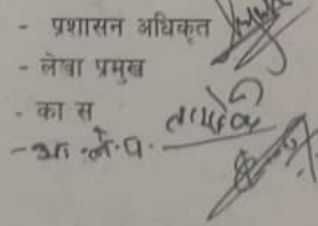 - प्रशासन अधिकृत
- लेखा प्रमुख
- का स
- आ.ले.प.